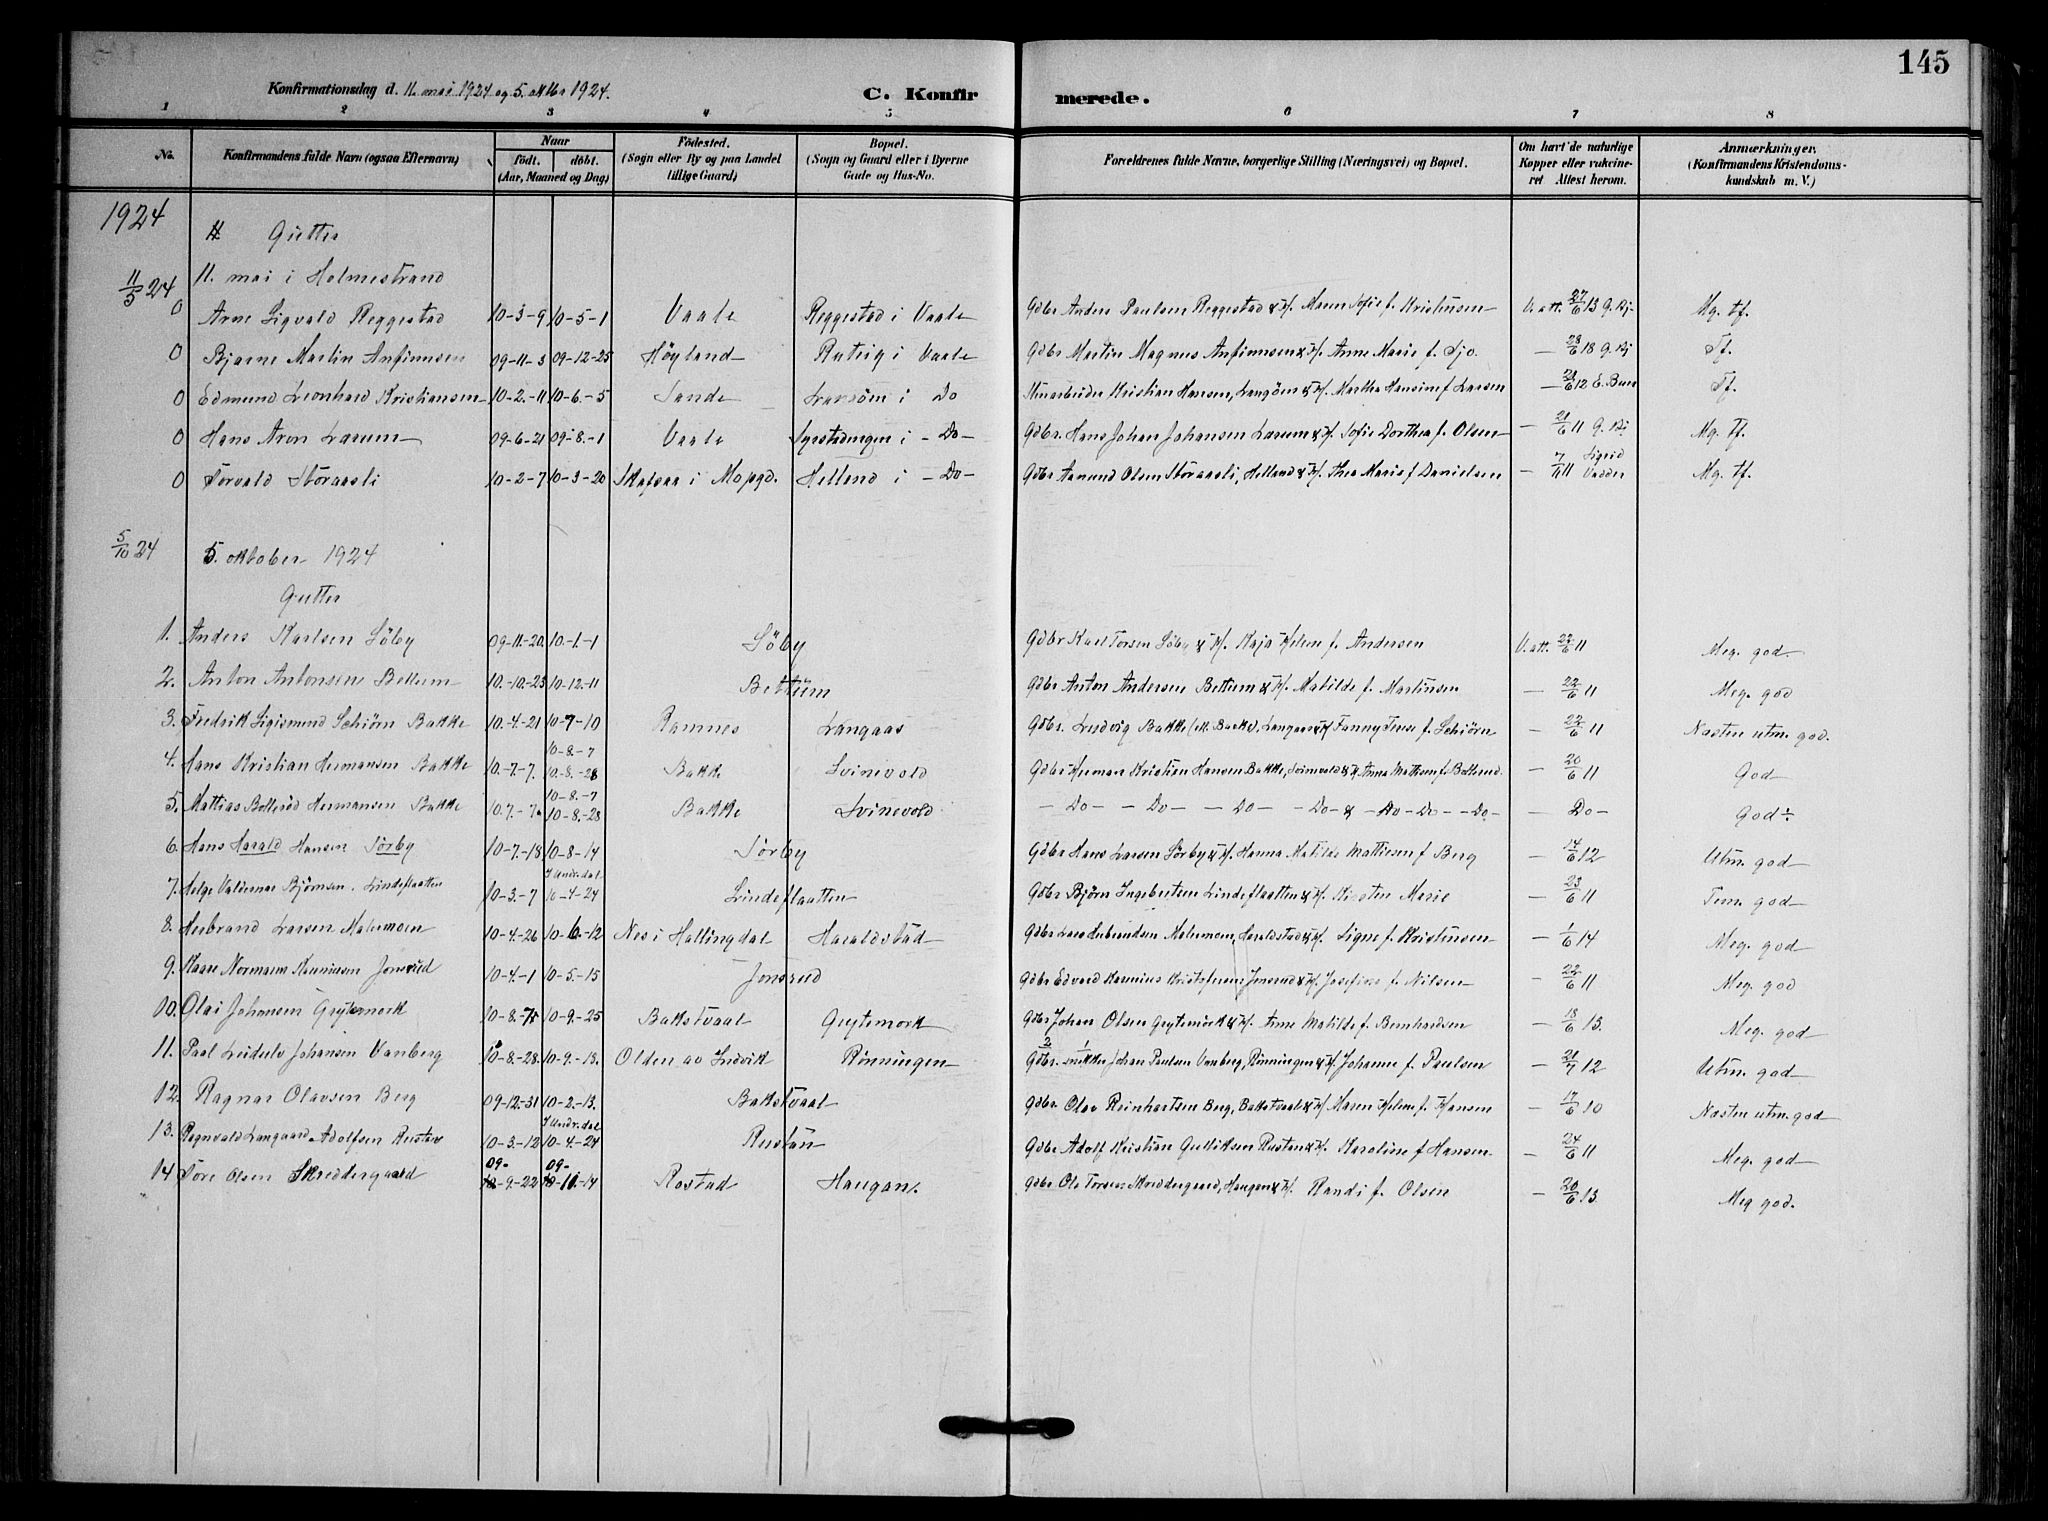 145
Konfirmationsdag d. 11. mai 1924 og 5. oktbr 1924.
C. Konfirmerede.
1 2 3 4 5 6 7 8
No. Konfirmandens fulde Navn (ogsaa Efternavn) Naar født. døbt. (Aar, Maaned og Dag) Fødested. (Sogn eller By og paa Landet tillige Gaard) Bopæl. (Sogn og Gaard eller i Byerne Gade og Hus-No. Forældrenes fulde Navne, borgerlige Stilling (Næringsvei) og Bopæl. Om havt de naturlige Kopper eller vakcineret Attest herom. Anmærkninger. (Konfirmandens Kristendomskundskab m. V.)
1924
Gutter
11/5 24 11. mai i Holmestrand
0 Arne Sigvald Reggestad 10-3-9 10-5-1 Vaale Reggestad i Vaale Gdbr Anders Paulsen Reggestad & H. Maren Sofie f. Kristensen V. att. 27/6 13 G. Bj. Mg. tf.
0 Bjarne Martin Anfinnsen 09-11-3 09-12-25 Høyland i Vaale Gdbr Martin Magnus Anfinnsen & H. Anne Marie f. Sjo. — 28/6 18 G. Bj Tf.
0 Edmund Leonhard Kristiansen 10-2-11 10-6-5 Sande i Do Kristian Hansen, & H. Martha Hansine f Larsen — 12 E. Tf.
0 Hans Aron Larum 09-6-21 09-8-1 Vaale i -Do- Gdbr. Hans Johan Johansen Larum & H. Sofie Dorthea f. Olsen — 21/6 11 G. Bj Mg. Tf.
0 Torvald Storaasli 10-2-7 10-3-20 Skafsaa i Mo Helland i -Do- Gdbr Aamund Olsen Storaasli, Helland & H. Thea Marie f Danielsen — 7/11 11 Sigrid Mg. tf.
5/10 24 5. oktober 1924
Gutter
1. Anders Karlsen Söby 09-11-20. 10-1-1 Söby Gdbr Karl Torsen Söby & H. Kaja Helene f. Andersen V. att. 22/6 11 Meg. god.
2. Anton Antonsen Bettum 10.-10-23 10-12-11 Bettum Gdbr Anton Andersen Bettum & H. Matilde f. Martinsen — 22/6 11 Meg. god
3. Fredrik Sigismund Schiörn Bakke 10-4-21 10-7-10 Ramnes Langaas Gdbr. Ludvig Bakke Langaas & H Fanny f. Schiörn — 22/6 11 Næsten utm. god.
4. Hans Kristian Hermansen Bakke 10.-7-7. 10-8.-7 10-8.-28 Bakke Svinevold Gdbr Herman Kristian Hansen Bakke, Svinevold & H Anna Mathea f. — 20/6 11 God
5. Mattias Bollerød Hermansen Bakke 10.7.-7. 10-8.-7 10-8.-28 Bakke Svinevold -Do- -Do- -Do- -Do & -Do-Do- -Do- -Do- God ÷
6. Hans Harald Hansen Sörby 10-7.-18 10-8-14 Sörby Gdbr Hans Larsen Sörby & H. Hanna Matilde Mathisen f Berg — 14/6 12 Utm. god
7. Helge Valdemar Björnsen. Lindeflaatten 10-3.-7 10-4-24 Lindeflaatten Gdbr Björn Ingebretsen Lindeflaatten & H. Kirsten Marie — 23/6 11 Tem. god
8. Herbrand Larsen Malumoen 10-4.-26 10-6.-12 Nes i Hallingdal Haraldstad Gdbr Lars Herbrandsen Malumoen, Haraldstad & H. Signe f. Kristensen — 1/6 14 Meg. god
9. Kaare Normann Jonsrud 10-4.-1 10-5.-15 Jonsrud Gdbr Edvard Kristofersen Jonsrud & H. Josefine f. Nilsen — 22/6 11 Meg. god
10. Olai Johansen Grytemork 10-8.-75 10-9.-25 Bakstvaal Grytemork Gdbr Johan Olsen Grytemork & H. Anne Matilde f. Bernhardsen — 18/6 13. Meg. god
11. Paal Leidulv Johansen Vanberg 10-8.-28. 10-9.-18. Olden av Indvik Rønningen 2 Gdbr. 1 snekker Johan Paulsen Vanberg, Rønningen & H. Johanne f. Paulsen — 21/7 12 Utm. god
12. Ragnar Olavsen Berg 09-12.-31 10-2.-13. Bakstvaal Gdbr. Olav Reinhartsen Berg, Bakstvaal & H Maren Helene f. Hansen — 17/6 10 Næsten utm. god
13. Ragnvald Langaard Adolfsen Rustan 10-3.-12 10-4.-24 Rustan Gdbr Adolf Kristian Gulliksen Rustan & H. Karoline f Hansen — 24/6 11 Meg. god
14 Tore Olsen Skreddergaard 09- 10-9.-22 09- 10-11.-14 Rostad Haugan. Gdbr Ole Torsen Skreddergaard, Haugan & H. Randi f. Olsen — 20/6 13. Meg god.